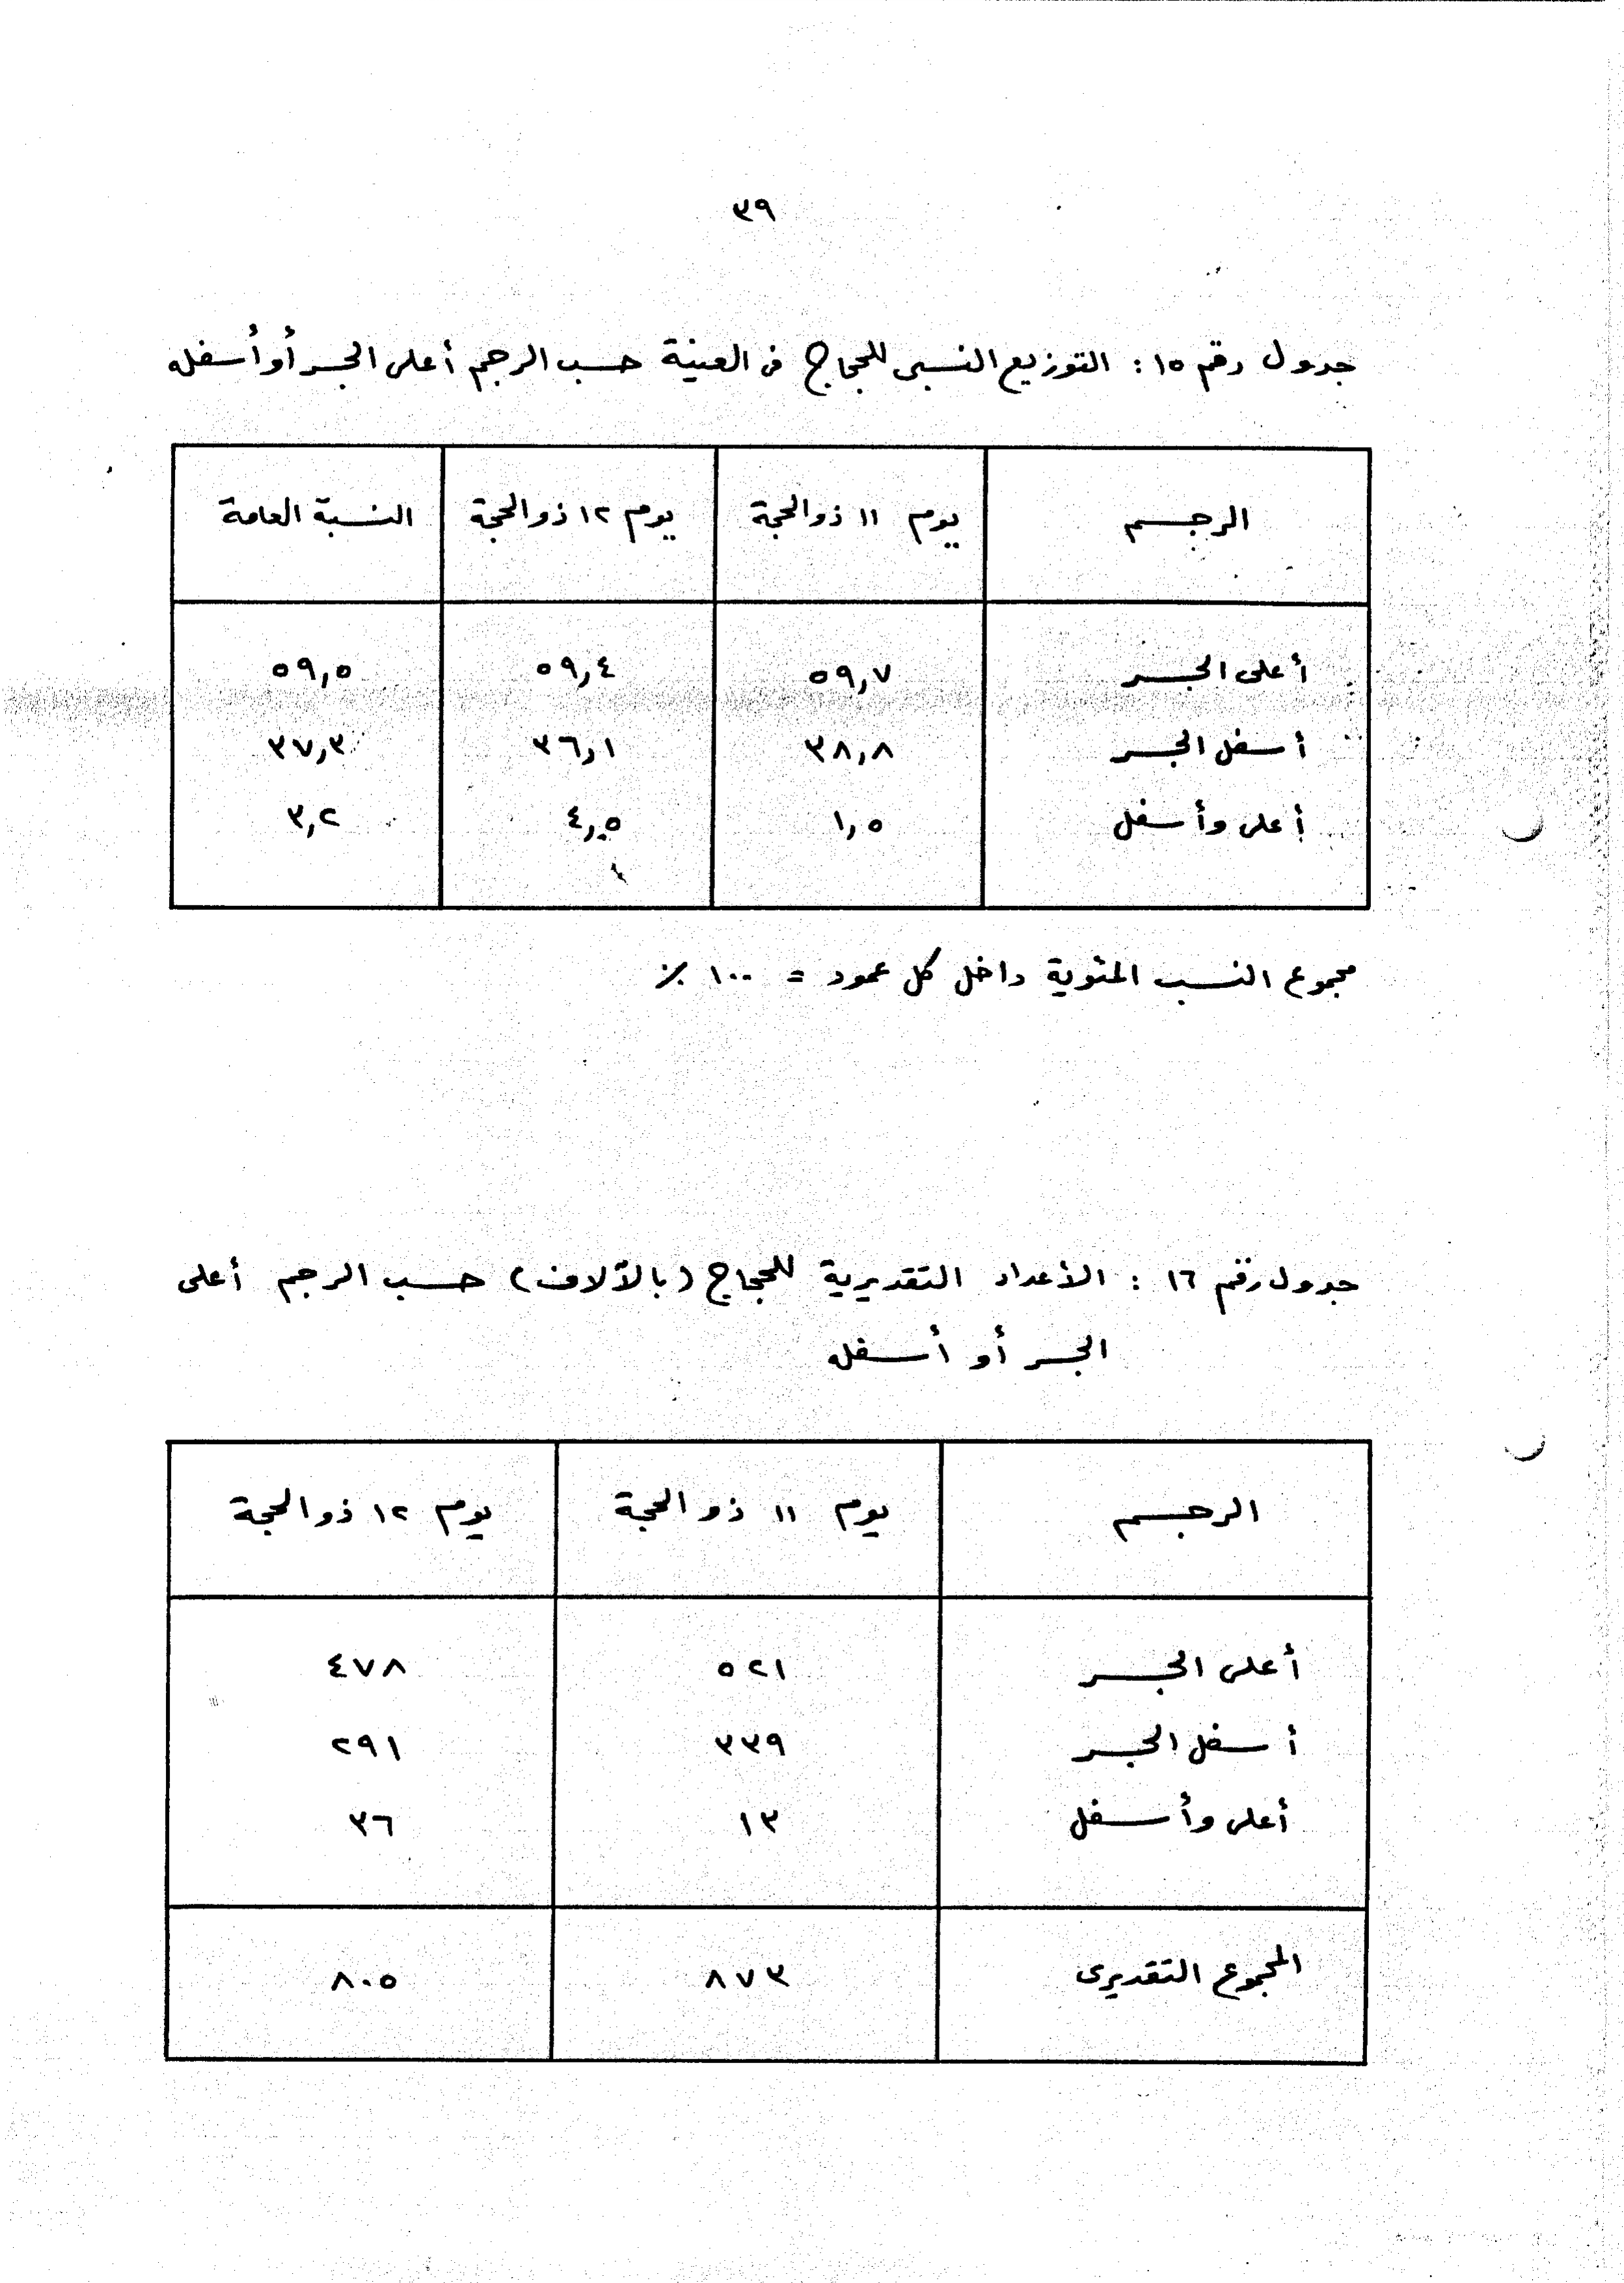 ٣٩
جدول رقم ١٥ : التوزيع النسبى للحجاج فى العينة حسب الرجم أعلى الجسر أو أسفله
الرجم يوم ١١ ذو الحجة يوم ١٢ ذو الحجة النسبة العامة
أعلى الجسر ٥٩,٧ ٥٩,٤ ٥٩,٥
أسفل الجسر ٣٨,٨ ٣٦,١ ٣٧,٣
أعلى وأسفل ١,٥ ٤,٥ ٣,٢
مجموع النسب المئوية داخل كل عمود = ١٠٠ ٪
جدول رقم ١٦ : الأعداد التقديرية للحجاج (بالآلاف) حسب الرجم أعلى
الجسر أو أسفله
الرجم يوم ١١ ذو الحجة يوم ١٢ ذو الحجة
أعلى الجسر ٥٢١ ٤٧٨
أسفل الجسر ٣٣٩ ٢٩١
أعلى وأسفل ١٣ ٣٦
المجموع التقديرى ٨٧٣ ٨٠٥